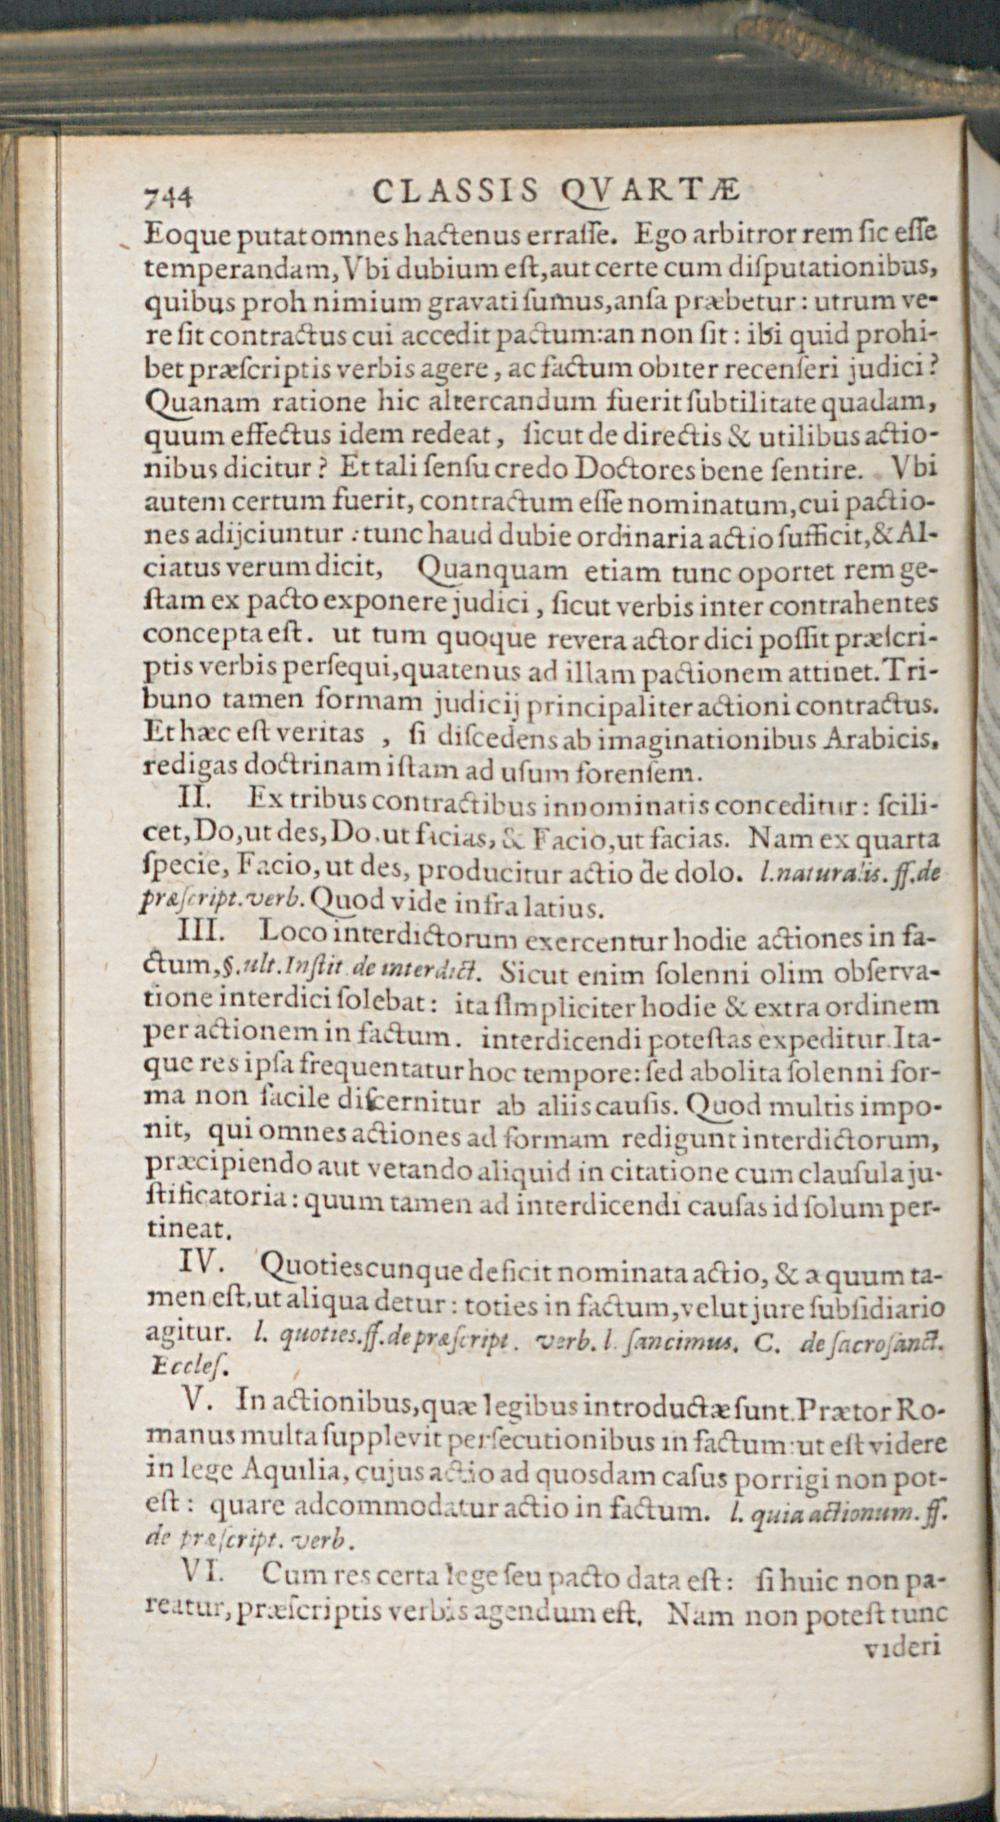 744 CLASSIS QVARTÆ
Eoque putat omnes hactenus erraſſe. Ego arbitror rem ſic eſſe
temperandam, Vbi dubium eſt, aut certe cum diſputationibus,
quibus proh nimium gravati ſumus, anſa præbetur: utrum ve-
re ſit contractus cui accedit pactum: an non ſit: ibi quid prohi-
bet præſcriptis verbis agere, ac factum obiter recenſeri judici?
Quanam ratione hic altercandum fuerit ſubtilitate quadam,
quum effectus idem redeat, ſicut de directis & utilibus actio-
nibus dicitur? Et tali ſenſu credo Doctores bene ſentire. Vbi
autem certum fuerit, contractum eſſe nominatum, cui pactio-
nes adijciuntur: tunc haud dubie ordinaria actio ſufficit, & Al-
ciatus verum dicit, Quanquam etiam tunc oportet rem ge-
ſtam ex pacto exponere judici, ſicut verbis inter contrahentes
concepta eſt. ut tum quoque revera actor dici poſſit præſcri-
ptis verbis perſequi, quatenus ad illam pactionem attinet. Tri-
buno tamen formam judicij principaliter actioni contractus.
Et hæc eſt veritas, ſi diſcedens ab imaginationibus Arabicis,
redigas doctrinam iſtam ad uſum forenſem.
II. Ex tribus contractibus innominatis conceditur: ſcili-
cet, Do, ut des, Do. ut facias, & Facio, ut facias. Nam ex quarta
ſpecie, Facio, ut des, producitur actio de dolo. l. naturalis. ff. de
præſcript. verb. Quod vide infra latius.
III. Loco interdictorum exercentur hodie actiones in fa-
ctum, §. ult. Inſtit. de interdict. Sicut enim ſolenni olim obſerva-
tione interdici ſolebat: ita ſimpliciter hodie & extra ordinem
per actionem in factum. interdicendi poteſtas expeditur. Ita-
que res ipſa frequentatur hoc tempore: ſed abolita ſolenni for-
ma non facile diſcernitur ab aliis cauſis. Quod multis impo-
nit, qui omnes actiones ad formam redigunt interdictorum,
præcipiendo aut vetando aliquid in citatione cum clauſula ju-
ſtificatoria: quum tamen ad interdicendi cauſas id ſolum per-
tineat.
IV. Quotiescunque deficit nominata actio, & æquum ta-
men eſt, ut aliqua detur: toties in factum, velut jure ſubſidiario
agitur. l. quoties. ff. de præſcript. verb. l. ſancimus. C. de ſacroſanct.
Eccleſ.
V. In actionibus, quæ legibus introductæ ſunt. Prætor Ro-
manus multa ſupplevit perſecutionibus in factum: ut eſt videre
in lege Aquilia, cujus actio ad quosdam caſus porrigi non pot-
eſt: quare adcommodatur actio in factum. l. quia actionum. ff.
de præſcript. verb.
VI. Cum res certa lege ſeu pacto data eſt: ſi huic non pa-
reatur, præſcriptis verbis agendum eſt. Nam non poteſt tunc
videri